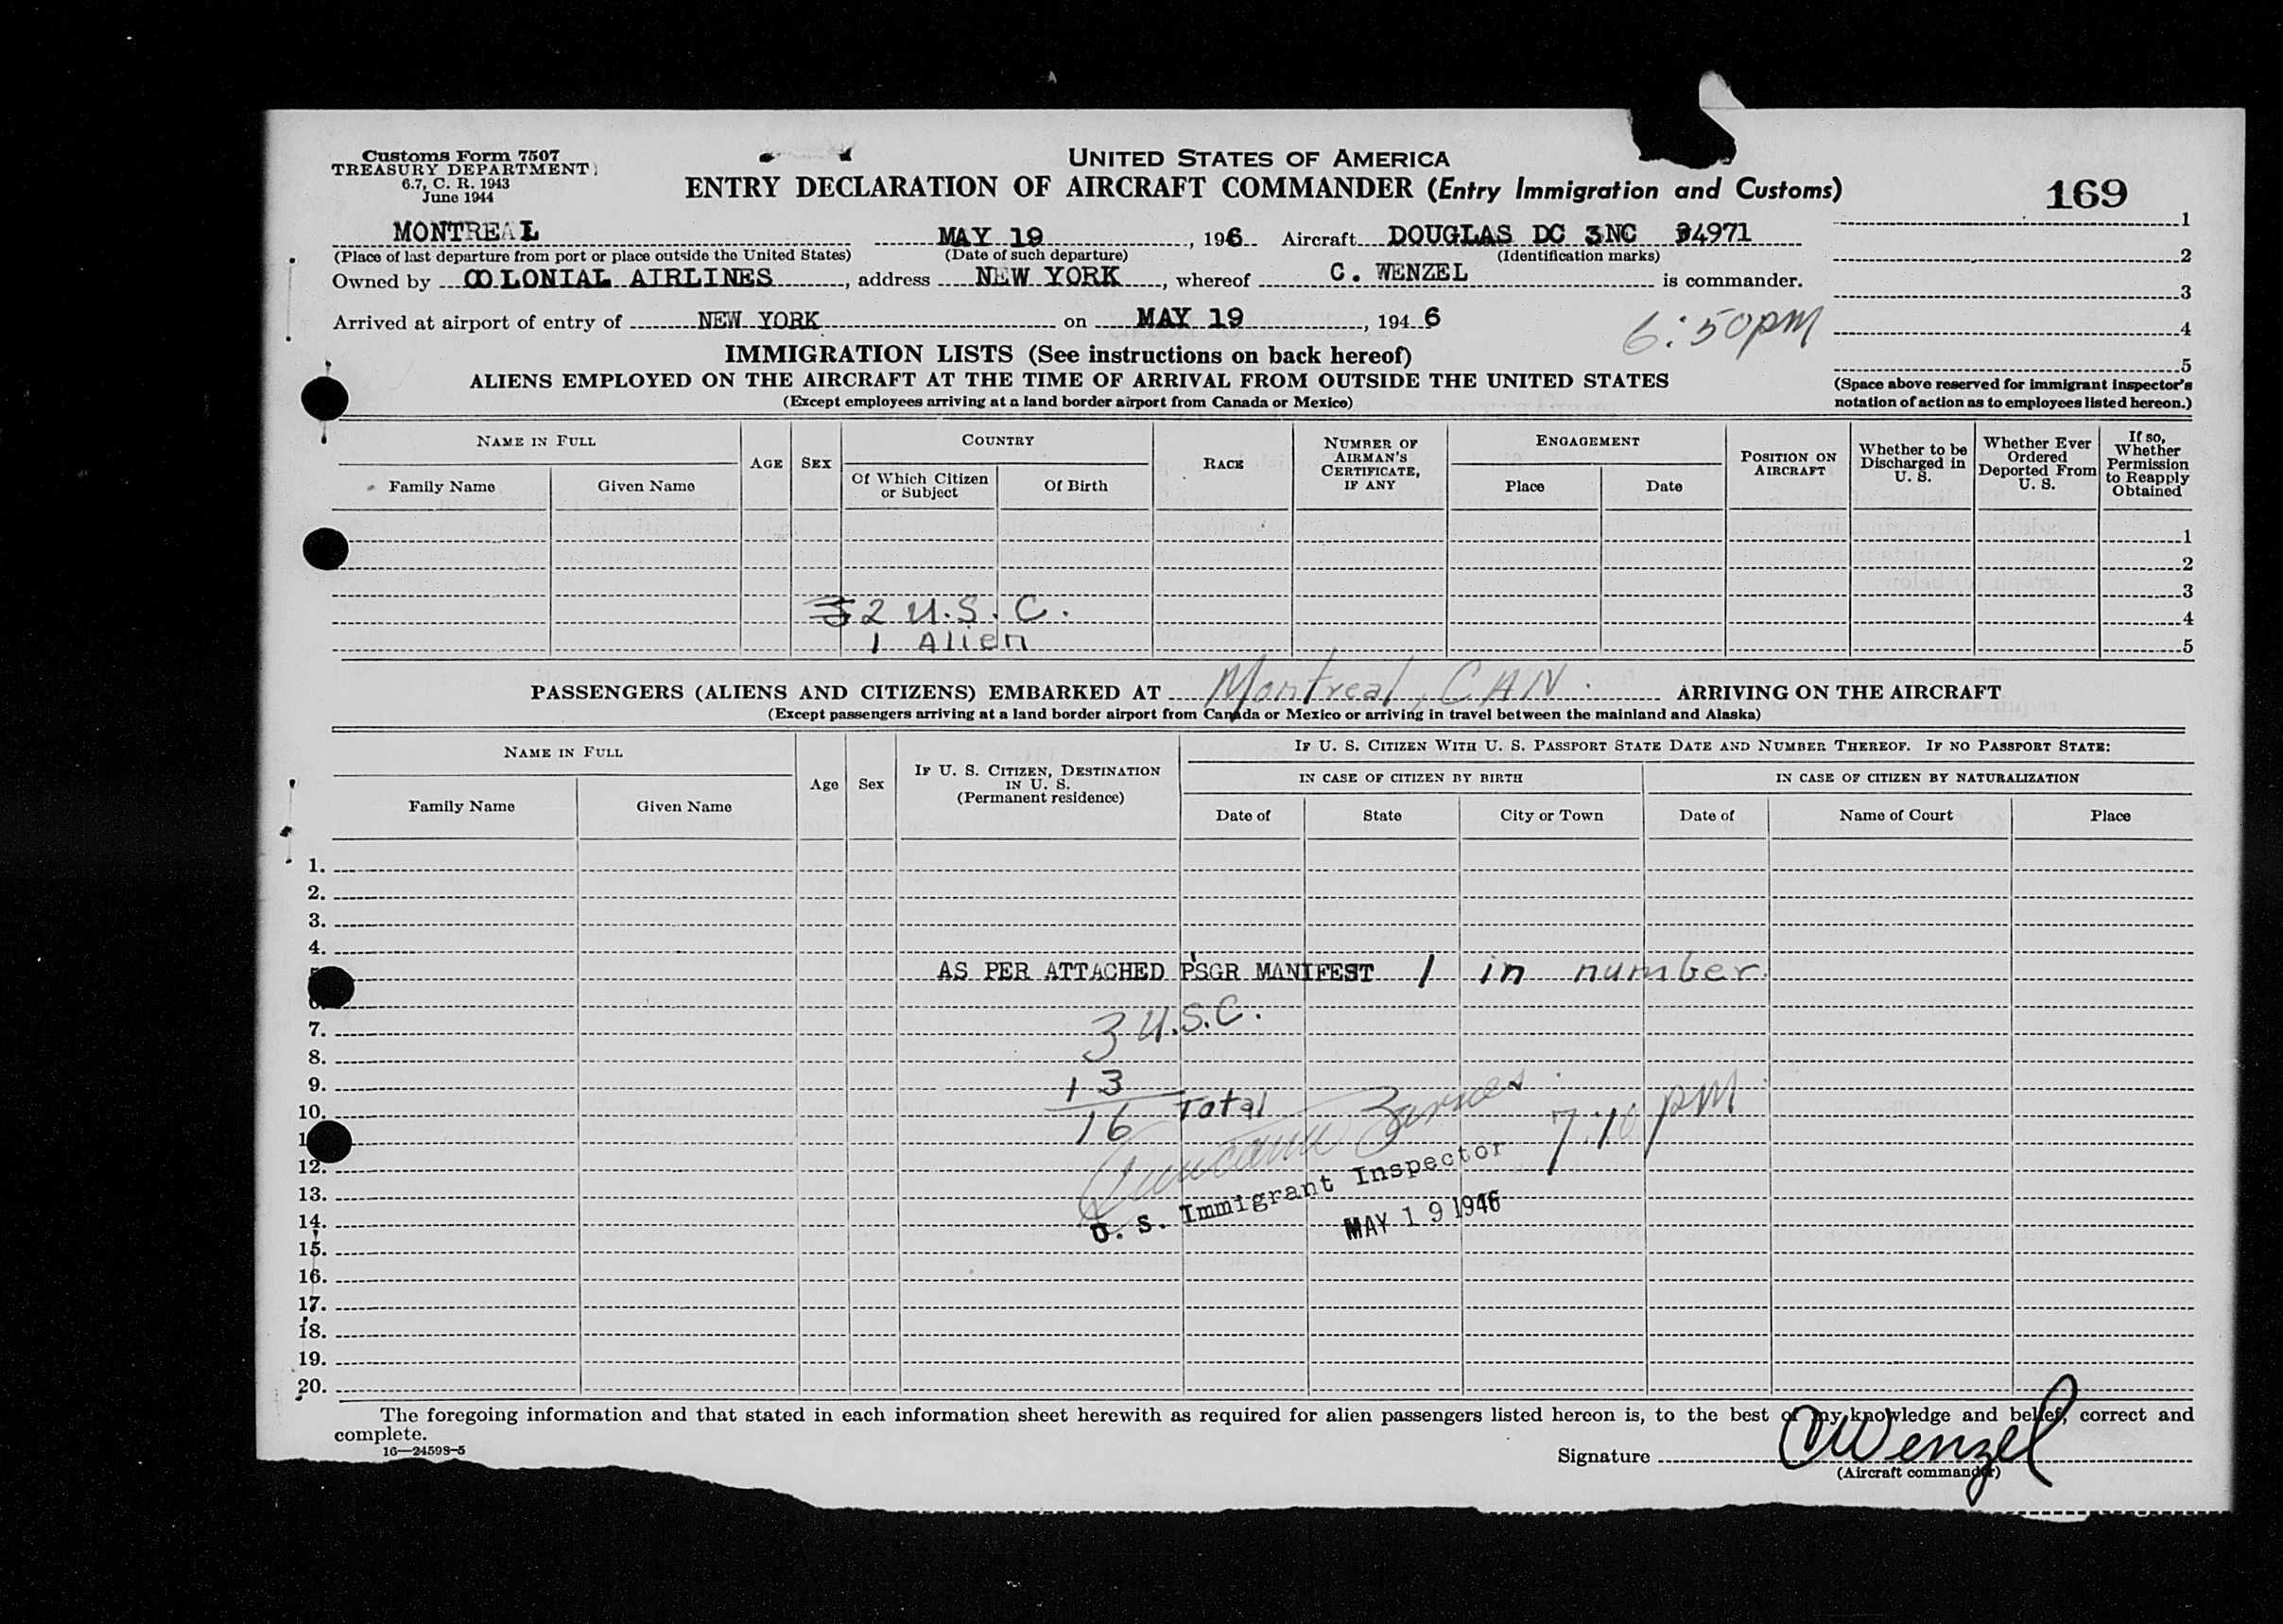 Customs Form 7507
TREASURY DEPARTMENT
6.7, C. R. 1943
June 1944
UNITED STATES OF AMERICA
ENTRY DECLARATION OF AIRCRAFT COMMANDER (Entry Immigration and Customs)
169
MONTREAL MAY 19, 1946 Aircraft DOUGLAS DC 3NC 34971
(Place of last departure from port or place outside the United States) (Date of such departure) (Identification marks)
Owned by COLONIAL AIRLINES, address NEW YORK, whereof C. WENZEL is commander.
Arrived at airport of entry of NEW YORK on MAY 19, 1946
6:50 pm
1
2
3
4
5
(Space above reserved for immigrant inspector's
notation of action as to employees listed hereon.)
IMMIGRATION LISTS (See instructions on back hereof)
ALIENS EMPLOYED ON THE AIRCRAFT AT THE TIME OF ARRIVAL FROM OUTSIDE THE UNITED STATES
(Except employees arriving at a land border airport from Canada or Mexico)
NAME IN FULL
Family Name Given Name
AGE SEX
COUNTRY
Of Which Citizen or Subject Of Birth
RACE
NUMBER OF AIRMAN'S CERTIFICATE, IF ANY
ENGAGEMENT
Place Date
POSITION ON AIRCRAFT
Whether to be Discharged in U. S.
Whether Ever Ordered Deported From U. S.
If so, Whether Permission to Reapply Obtained
1
2
3
2 U.S.C. 4
1 Alien 5
PASSENGERS (ALIENS AND CITIZENS) EMBARKED AT Montreal, CAN. ARRIVING ON THE AIRCRAFT
(Except passengers arriving at a land border airport from Canada or Mexico or arriving in travel between the mainland and Alaska)
NAME IN FULL
Family Name Given Name
Age Sex
IF U. S. CITIZEN, DESTINATION IN U. S. (Permanent residence)
IF U. S. CITIZEN WITH U. S. PASSPORT STATE DATE AND NUMBER THEREOF. IF NO PASSPORT STATE:
IN CASE OF CITIZEN BY BIRTH IN CASE OF CITIZEN BY NATURALIZATION
Date of State City or Town Date of Name of Court Place
1.
2.
3.
4.
AS PER ATTACHED PSGR MANIFEST 1 in number
7. 3 U.S.C.
8.
9. 13
10. 16 Total
Barnes 7:10 pm
12.
13. U. S. Immigrant Inspector
14. MAY 19 1946
15.
16.
17.
18.
19.
20.
The foregoing information and that stated in each information sheet herewith as required for alien passengers listed hereon is, to the best of my knowledge and belief, correct and
complete.
16—24598-5
Signature C Wenzel
(Aircraft commander)